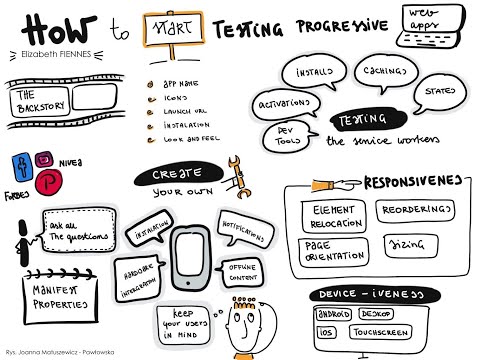 HOW to START TESTING PROGRESSIVE web apps
Elizabeth FIENNES
THE
BACKSTORY
APP NAME
ICONS
LAUNCH URL
INSTALATION
LOOK AND FEEL
INSTALLS
CACHINGS
STATES
ACTIVATIONS
DEV
TOOLS
TESTING
the service workers
NIVEA
FORBES
CREATE
YOUR OWN
ask all
the questions
MANIFEST
PROPERTIES
INSTALATION
NOTIFICATIONS
HARDWARE
INTERGRATION
OFFLINE
CONTENT
keep
your users
in mind
RESPONSIVENES
ELEMENT
RELOCATION
REORDERINGS
PAGE
ORIENTATION
SIZING
DEVICE-IVENESS
ANDROID
DESKOP
iOS
TOUCHSCREEN
Rys. Joanna Matuszewicz - Pawłowska